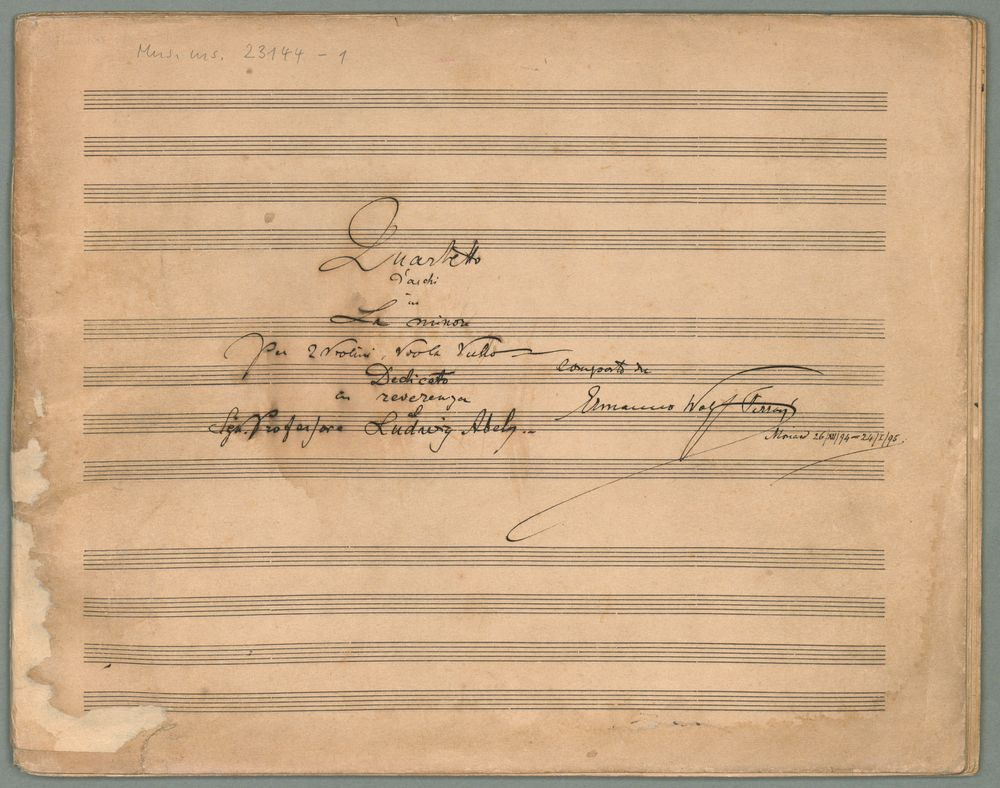 Mus. ms. 23144-1
Quartetto
d'archi
in
La minore
Per 2 Violini, Viola Vcllo
Composto da
Dedicato
in reverenza
Ermanno Wolf Ferrari
al
Sgr. Professore Ludwig Abel
Monaco 26/XII/94 – 24/I/95.